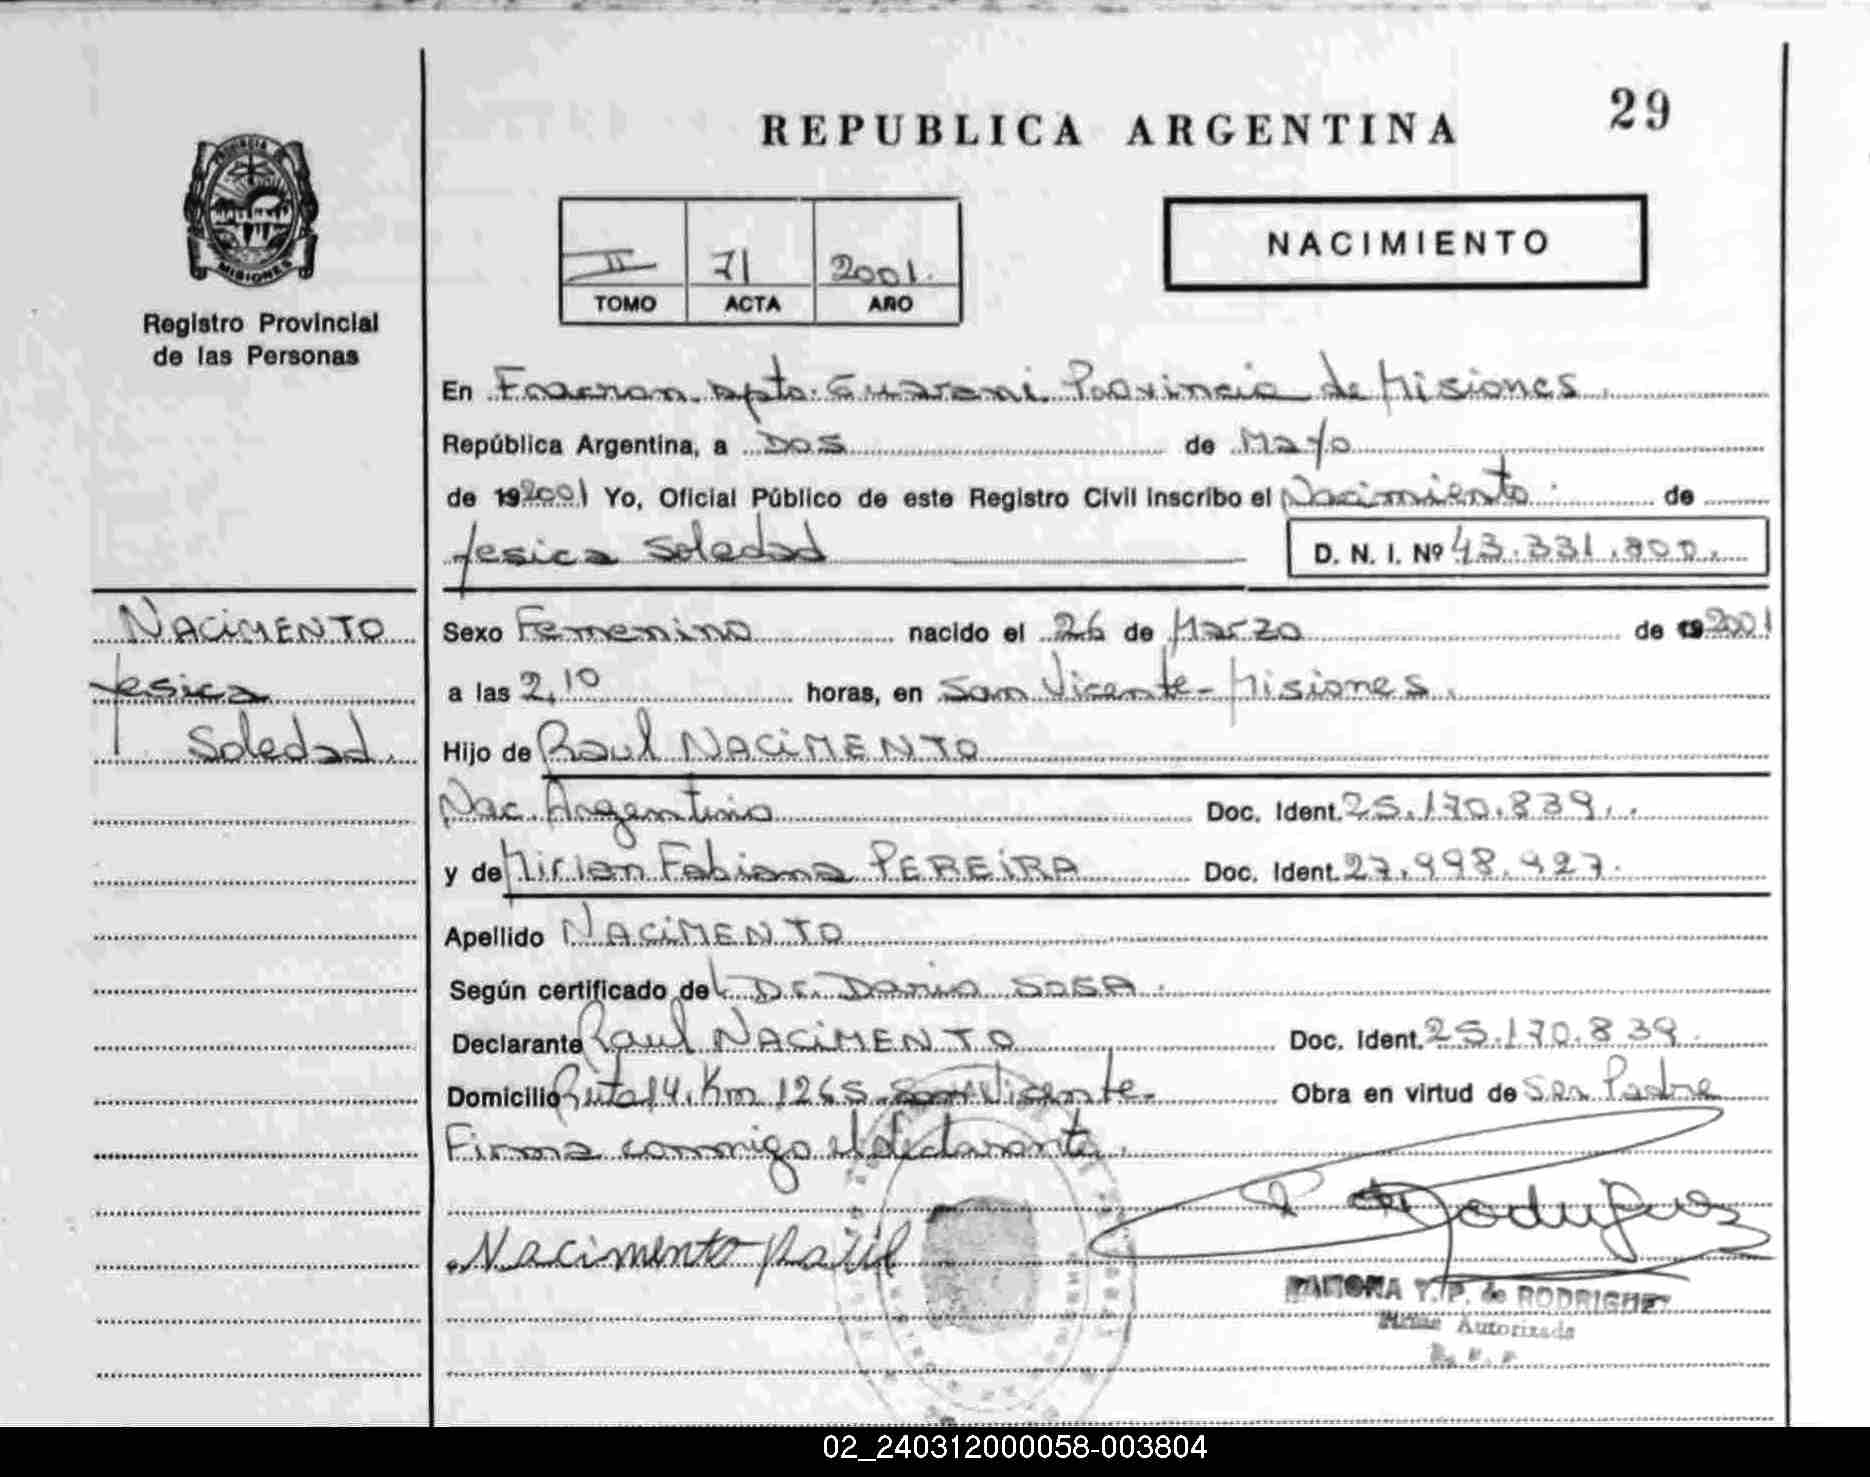 29
REPUBLICA ARGENTINA
PROVINCIA DE
MISIONES
Registro Provincial
de las Personas
II 71 2001.
TOMO ACTA AÑO
NACIMIENTO
En Fracran. Dpto. Guarani. Provincia de Misiones.
República Argentina, a Dos de Mayo
de 192001 Yo, Oficial Público de este Registro Civil inscribo el Nacimiento de
Jesica Soledad D. N. I. Nº 43.331.800.
NACIMENTO
Jesica
Soledad.
Sexo Femenino nacido el 26 de Marzo de 192001
a las 2,10 horas, en San Vicente - Misiones.
Hijo de Raul NACIMENTO
Nac. Argentino Doc. Ident. 25.170.839.
y de Mirian Fabiana PEREIRA Doc. Ident. 27.998.927.
Apellido NACIMENTO
Según certificado del Dr. Dario SOSA.
Declarante Raul NACIMENTO Doc. Ident. 25.170.839.
Domicilio Ruta 14. Km 1265. San Vicente- Obra en virtud de Ser Padre
Firma conmigo el declarante.
Nacimento Raúl
R de Rodriguez
RAMONA Y. P. de RODRIGUEZ
Firma Autorizada
02_240312000058-003804